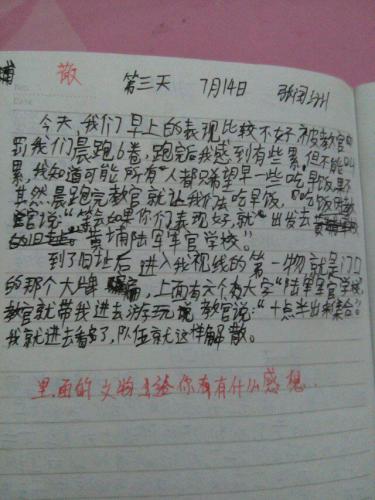 散
第三天 7月14日
今天,我们早上的表现比较不好被教官
罚我们晨跑6卷,跑完后我感到有些累,但不能叫
累,我知道可能所有人都只希望早一些吃早饭,果不
其然晨跑完教官就让我们去吃早饭,吃饭时教
官说:“等会如果你们表现好,就出发去
的旧址 黄埔陆军军官学校”。
到了旧址后进入我视线的第一物就是门口
的那个大牌 上面有六个大字“陆军军官学校”
教官就带我进去游玩 教官说:“十点半出来集合”
我就进去看了,队伍就这样解散。
里面的文物 你有什么感想